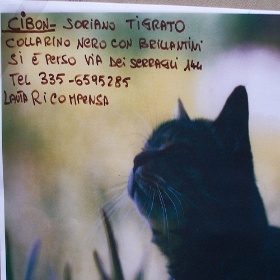 CIBON- SORIANO TIGRATO
COLLARINO NERO CON BRILLANTINI
SI È PERSO VIA DEI SERRAGLI 144
TEL 335-6595285
LAUTA RICOMPENSA